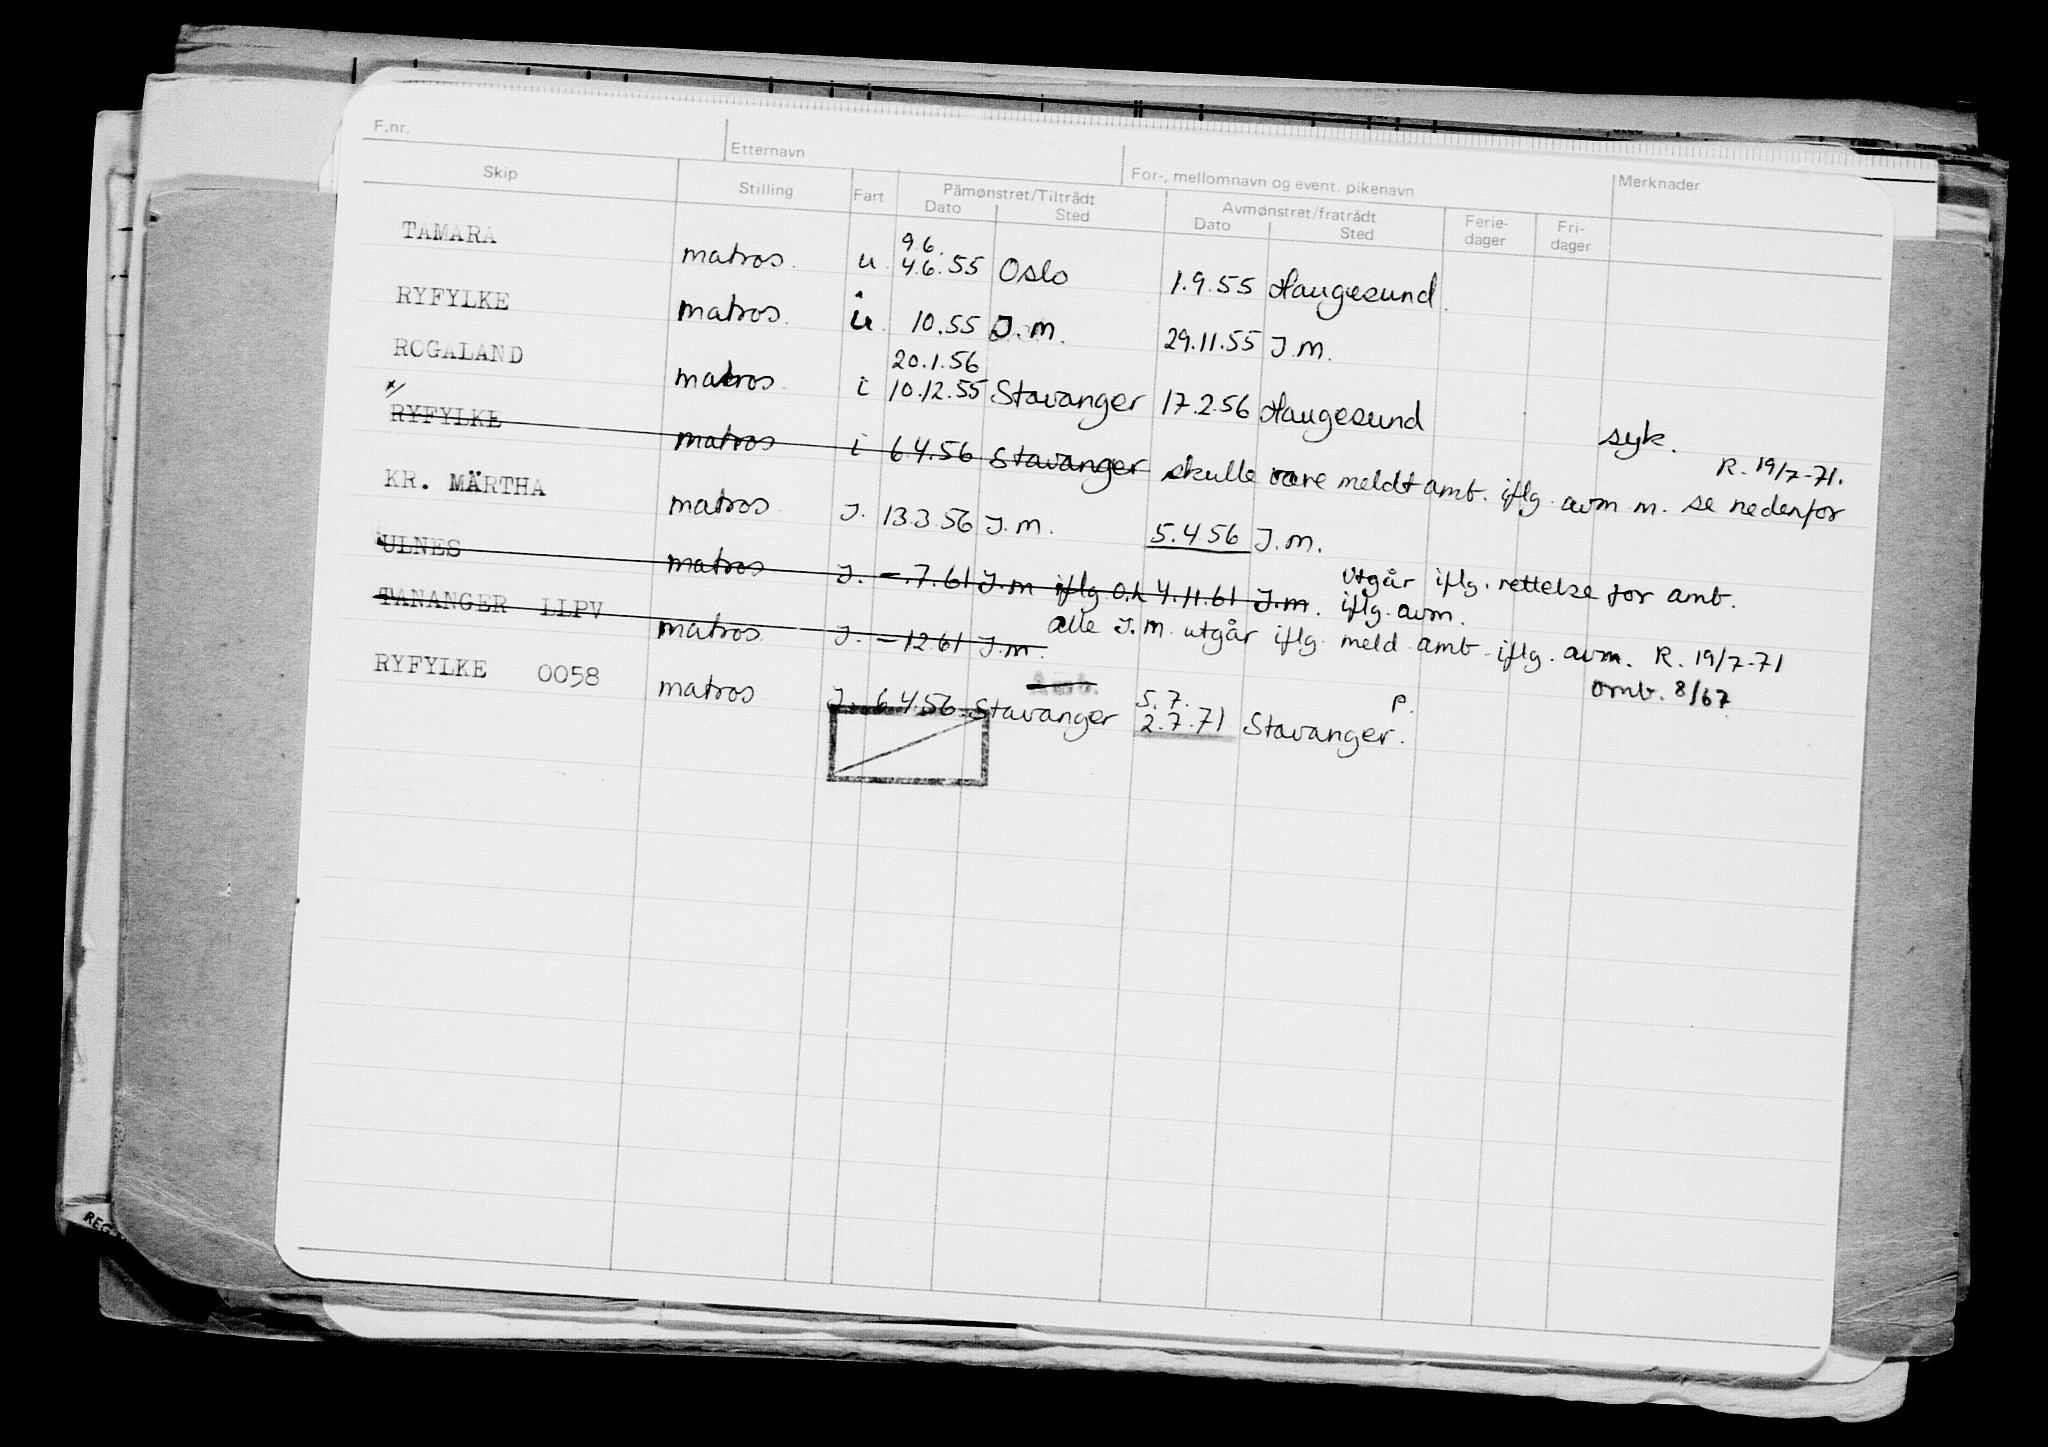 F.nr.
Etternavn
For-, mellomnavn og event. pikenavn
Merknader
Skip
Stilling
Fart
Påmønstret/Tiltrådt
Dato
Sted
Avmønstret/fratrådt
Dato
Sted
Ferie-
dager
Fri-
dager
9.6.
TAMARA matros. u. 4.6.55 Oslo 1.9.55 Haugesund.
RYFYLKE matros. u. 10.55 J.m. 29.11.55 J.m.
20.1.56
ROGALAND matros. i 10.12.55 Stavanger 17.2.56 Haugesund syk.
R. 19/7-71.
RYFYLKE matros i 6.4.56 Stavanger skulle være meldt amt. iflg. avm m. se nedenfor
KR. MÄRTHA matros J. 13.3.56 J.m. 5.4.56 J.m.
utgår iflg. rettelse for amt.
ULNES matros J. -.7.61 J.m iflg. O.k 4.11.61 J.m. iflg. avm.
alle J.m. utgår iflg. meld. amt. iflg. avm. R. 19/7-71
TANANGER LLPV matros J. -12.61 J.m.
Amb.
omb. 8/67
5.7. P.
RYFYLKE 0058 matros J. 6.4.56 Stavanger 2.7.71 Stavanger.